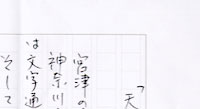 「天
宮津の
神奈川
は文字通
そして